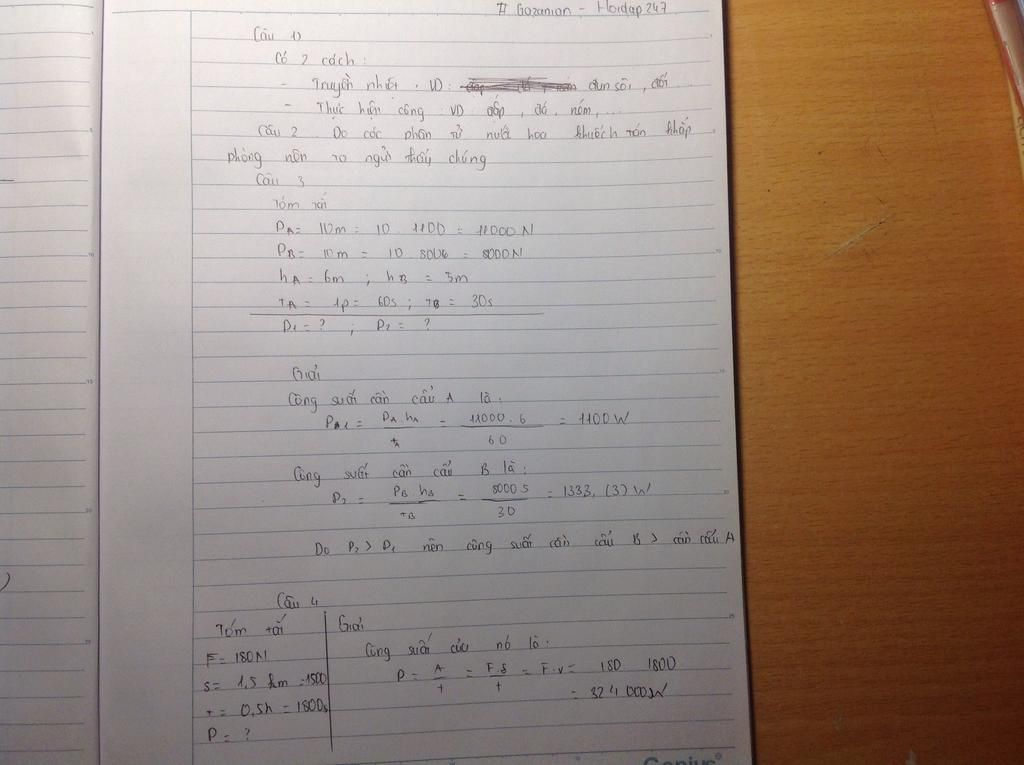 # Gozanian - Hoidap247
Câu 1)
Có 2 cách:
- Truyền nhiệt. VD: đun sôi, đốt
- Thực hiện công VD đập, đá, ném,...
Câu 2 Do các phân tử nước hoa khuếch tán khắp
phòng nên ta ngửi thấy chúng
Câu 3
Tóm tắt
PA = 10m = 10. 1100 = 11000N
PB = 10m = 10 800 = 8000N
hA = 6m ; hB = 5m
TA = 1p = 60s ; TB = 30s
P1 = ? ; P2 = ?
Giải
Công suất cần cẩu A là:
PA1 = PA.hA / tA = 11000.6 / 60 = 1100W
Công suất cần cẩu B là:
P2 = PB.hB / TB = 8000 5 / 30 = 1333,(3) W
Do P2 > P1 nên công suất cần cẩu B > cần cẩu A
Câu 4
Tóm tắt
F = 180N
s = 1,5 km = 1500
t = 0,5h = 1800s
P = ?
Giải
Công suất của nó là:
P = A / t = F.s / t = F.v = 180 1800
= 324 000W
Genius